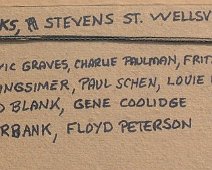 KS, STEVENS ST. WELLSV
IC GRAVES, CHARLIE PAULMAN, FRIT
NGSIMER, PAUL SCHEN, LOUIE
D BLANK, GENE COOLIDGE
RBANK, FLOYD PETERSON